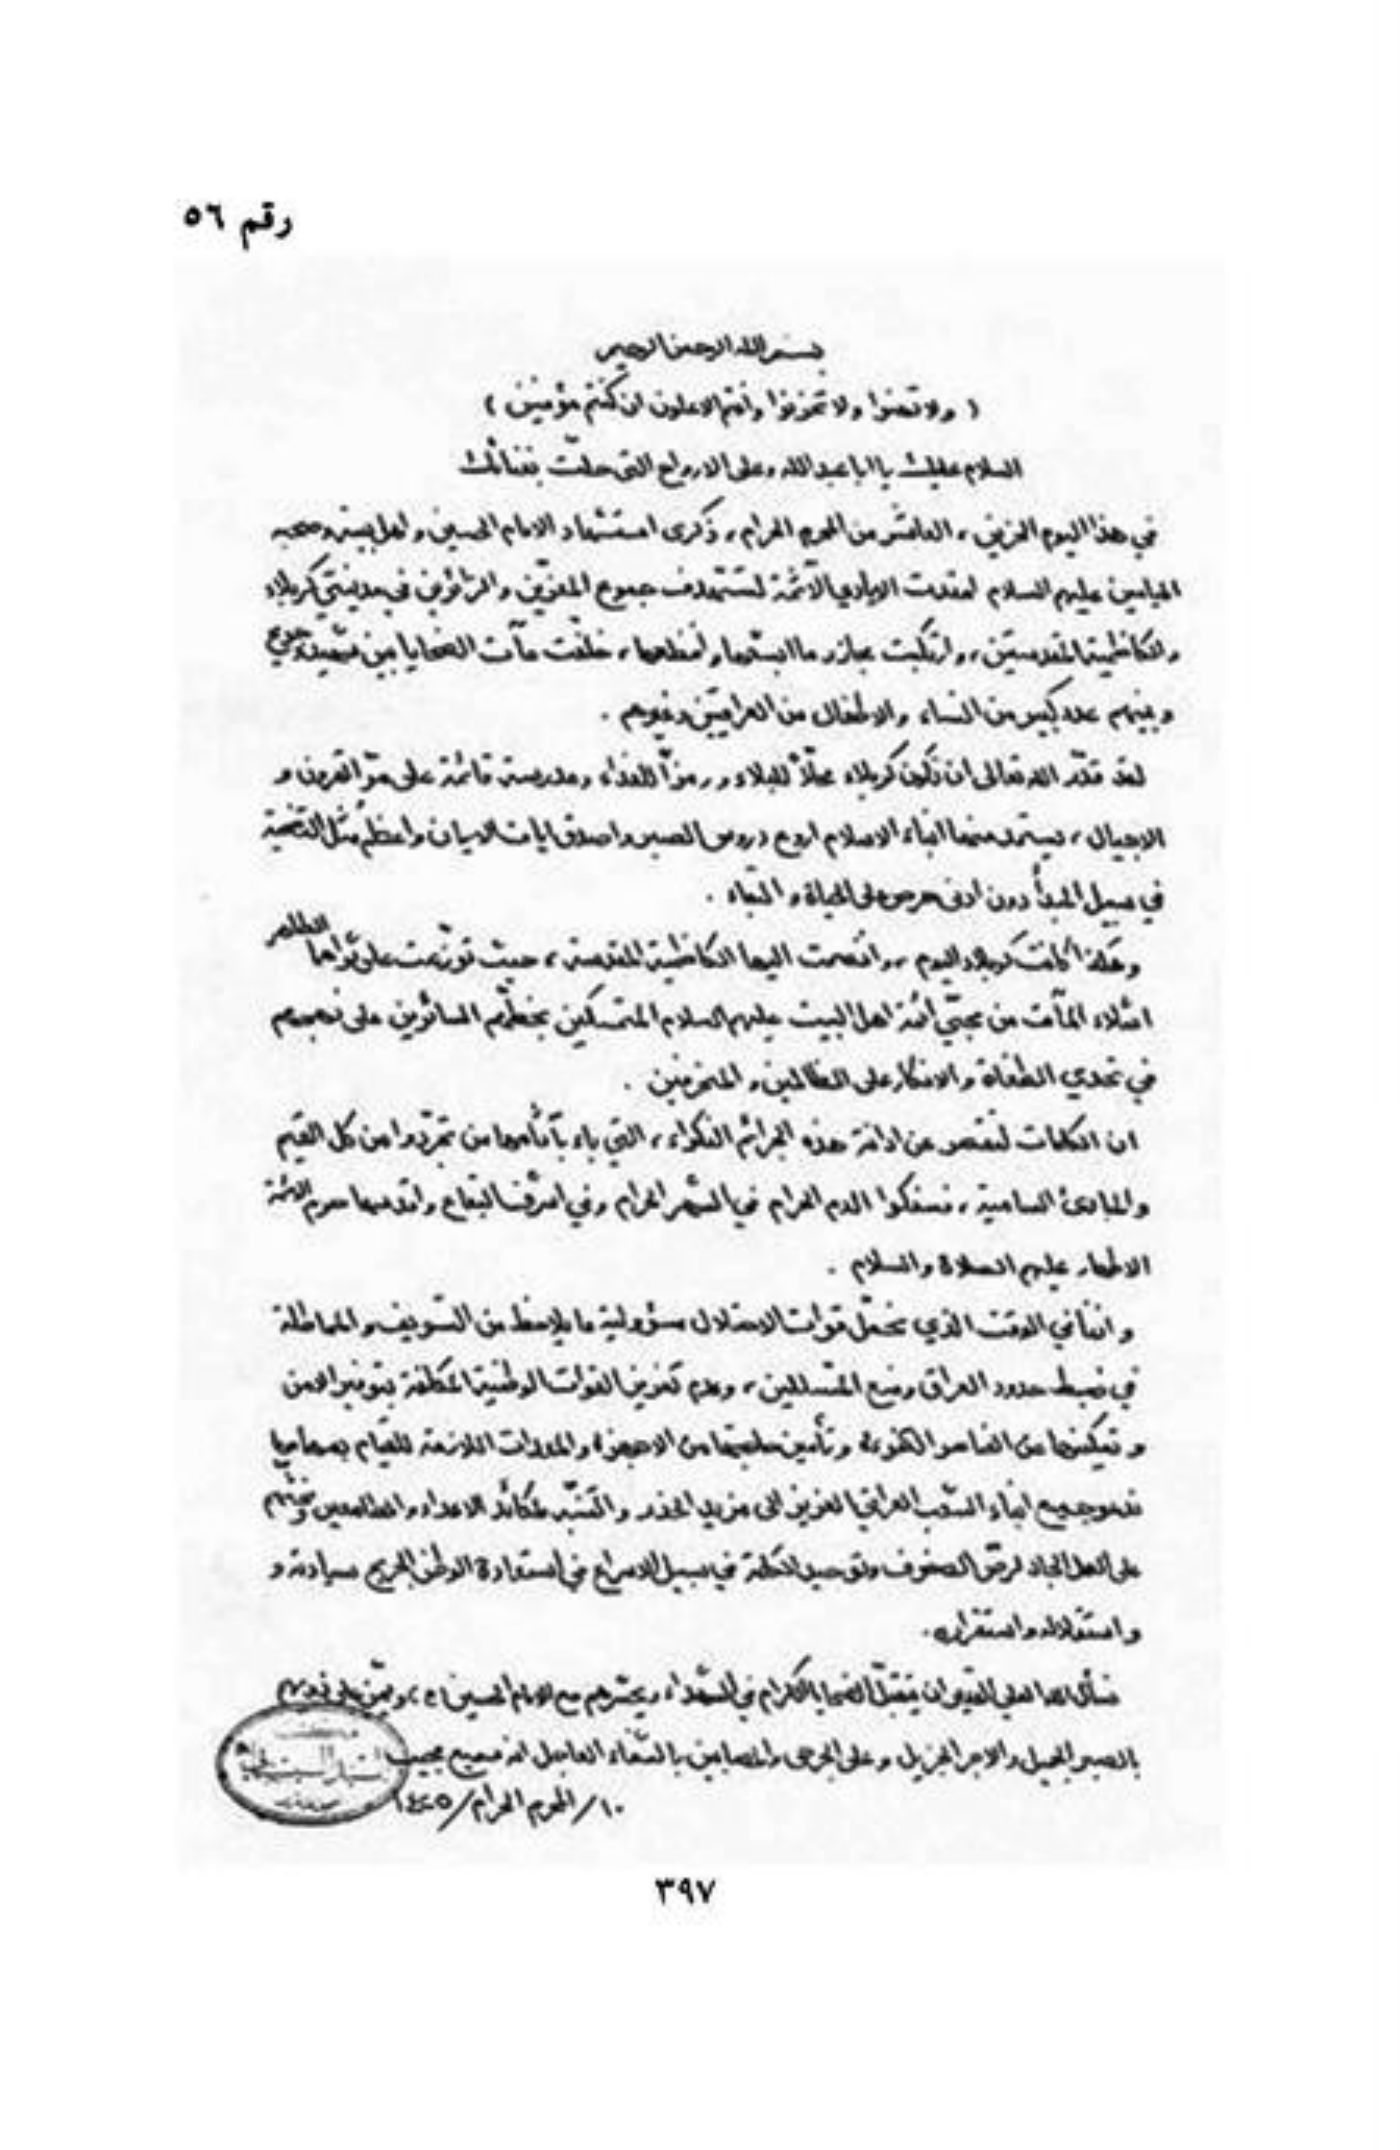 رقم ٥٦
بسم الله الرحمن الرحيم
( ولا تهنوا ولا تحزنوا وأنتم الاعلون ان كنتم مؤمنين )
السلام عليك يا ابا عبد الله وعلى الارواح التي حلّت بفنائك
في هذا اليوم الحزين ، العاشر من المحرم الحرام ، ذكرى استشهاد الامام الحسين و اهل بيته وصحبه
الميامين عليهم السلام امتدت الايادي الآثمة لتستهدف جموع المعزّين والزائرين في مدينتي كربلاء
والكاظمية المقدستين ، وارتكبت مجازر ما ابشعها وأفظعها ، خلّفت مآت الضحايا بين شهيد وجريح
وبينهم عدد كبير من النساء والاطفال من العراقيّين وغيرهم .
لقد قدّر الله تعالى ان تكون كربلاء محلّاً للبلاء ورمزاً للفداء ومدرسة قائمة على مرّ القرون و
الاجيال ، يستمد منها ابناء الاسلام اروع دروس الصبر واصدق ايات الايمان واعظم مُثُل التضحية
في سبيل المبدأ دون ادنى حرص على الحياة و البقاء .
وهكذا كانت كربلاء اليوم ، وانضمت اليها الكاظمية المقدسة ، حيث توزّعت على ثراها الطاهر
اشلاء المآت من محبّي أئمة اهل البيت عليهم السلام المتمسكين بخطّهم السائرين على نهجهم
في تحدي الطغاة والانكار على الظالمين و المنحرفين .
ان الكلمات لتقصر عن ادانة هذه الجرائم النكراء ، التي باء بآثامها من تجرّدوا من كل القيم
والمبادئ السامية ، فسفكوا الدم الحرام في الشهر الحرام وفي اشرف البقاع واقدسها حرم الائمة
الاطهار عليهم الصلاة والسلام .
و اننا في الوقت الذي نحمّل قوات الاحتلال مسؤولية ما يلاحظ من التسويف و المماطلة
في ضبط حدود العراق ومنع المتسللين ، وعدم تعزيز القوات الوطنية المكلفة بتوفير الامن
و تمكينها من العناصر الكفوءة وتأمين حاجتها من الاجهزة والمعدات اللازمة للقيام بمهامها
ندعو جميع ابناء الشعب العراقي العزيز الى مزيد الحذر والتنبّه لمكائد الاعداء والطامعين ونحثهم
على العمل الجاد لرصّ الصفوف وتوحيد الكلمة في سبيل الاسراع في استعادة الوطن الجريح سيادته و
واستقلاله واستقراره .
نسأل الله العلي القدير ان يتقبّل الضحايا الكرام في الشهداء ويحشرهم مع الامام الحسين (ع) ، ويمنّ على ذويهم
بالصبر الجميل والاجر الجزيل وعلى الجرحى والمصابين بالشفاء العاجل انه سميع مجيب
١٠/المحرم الحرام/١٤٢٥
٣٩٧